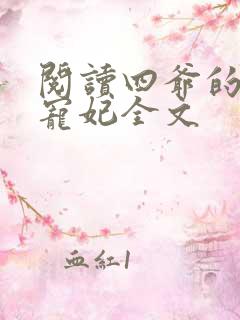 閱讀四爺的
寵妃全文
血紅1